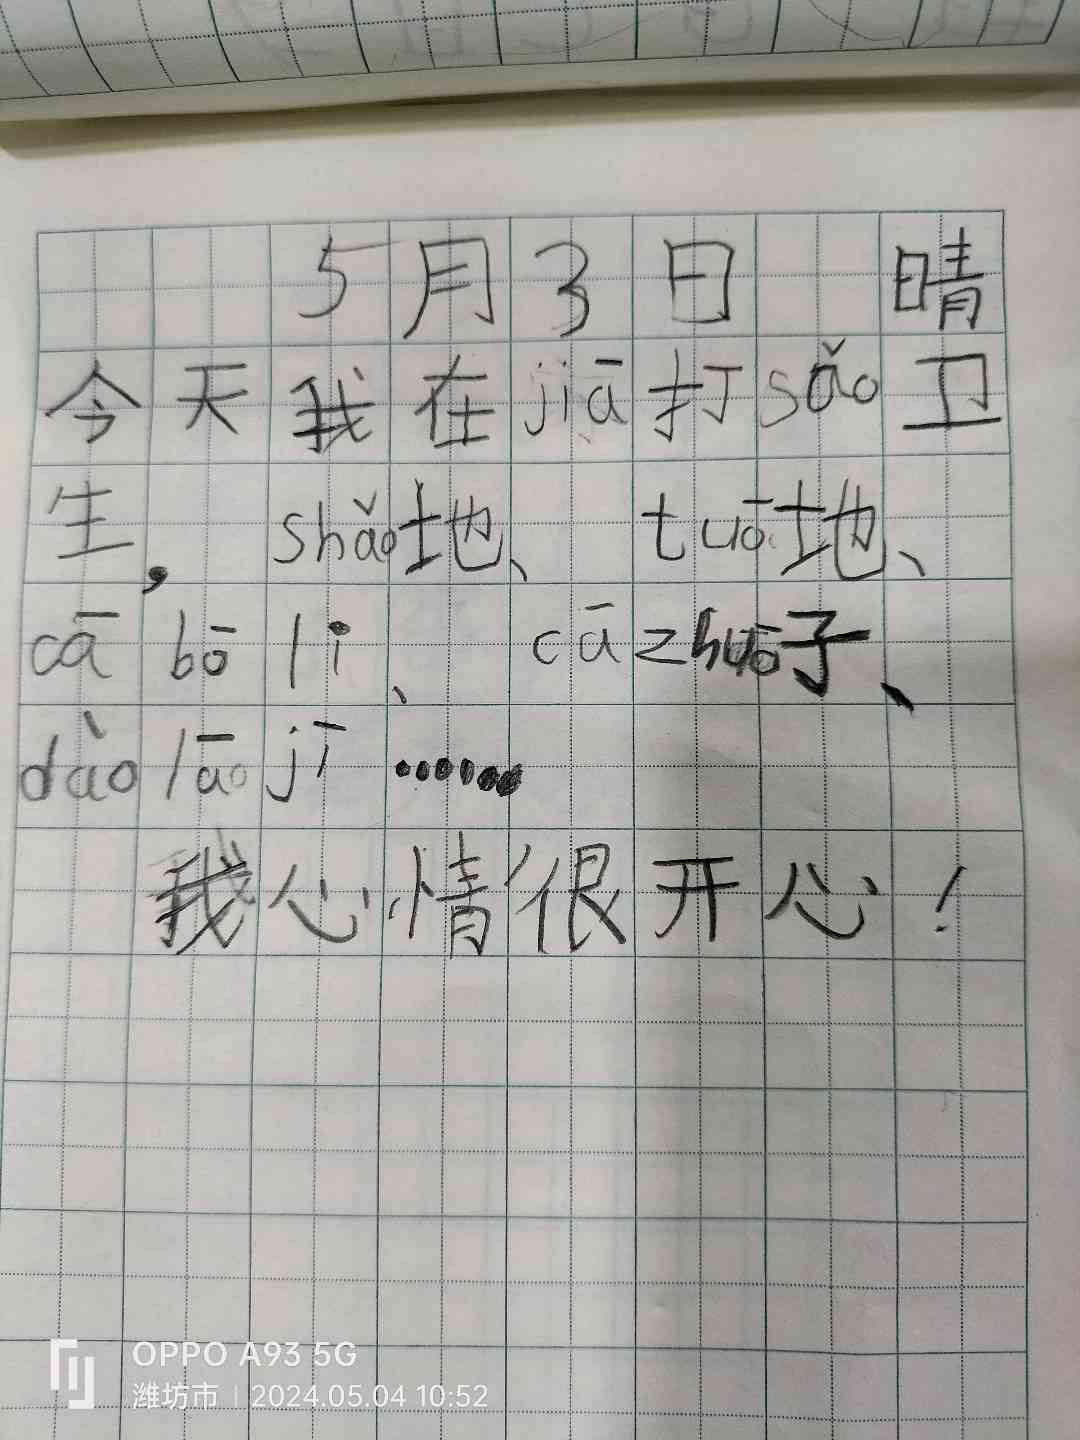 5月3日 晴
今天我在jiā打sǎo卫
生，shǎo地、tuō地、
cā bō li、cā zhuō子、
dào lāo jī……
我心情很开心！
OPPO A93 5G
潍坊市 | 2024.05.04 10:52